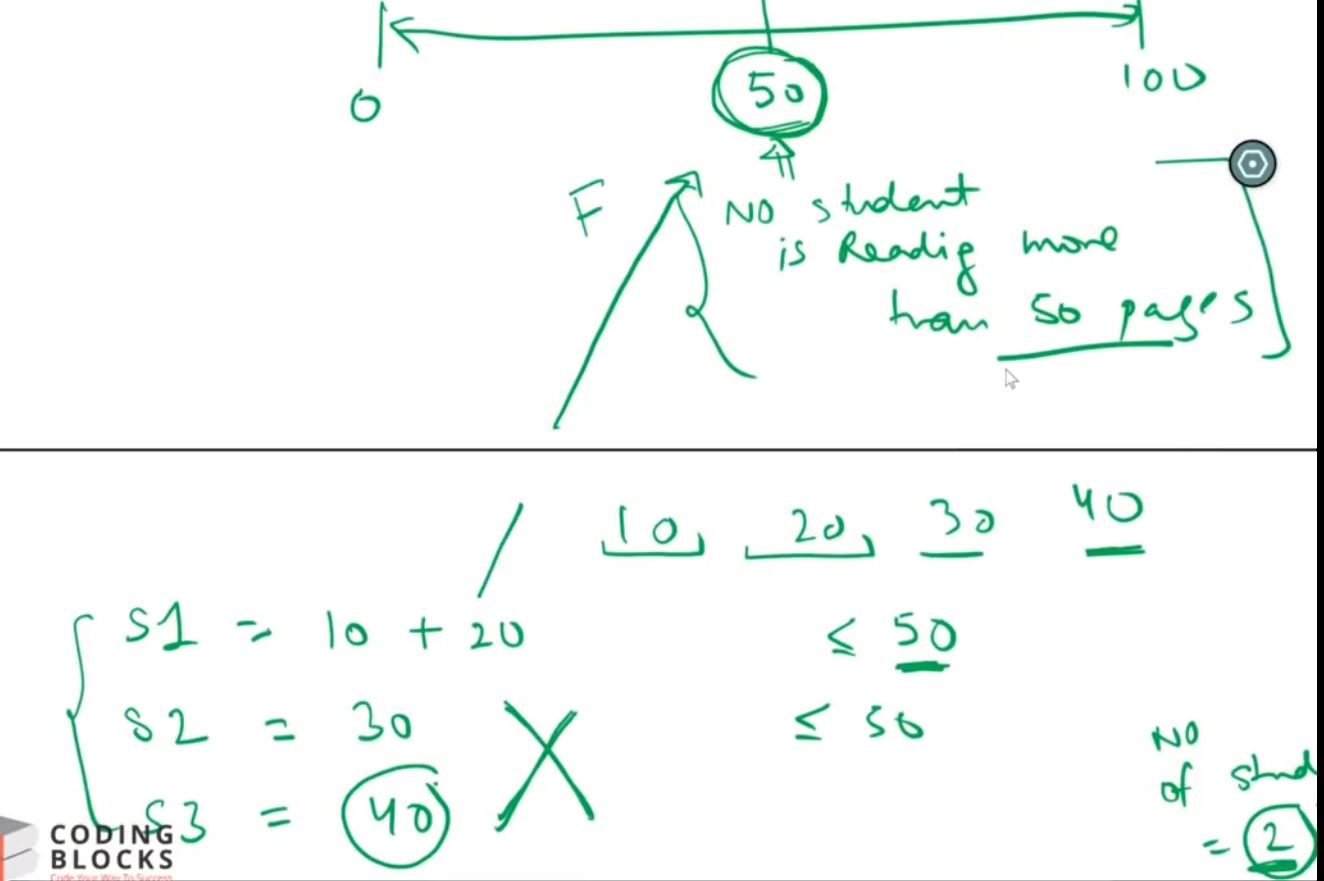 0
50
100
F
NO student
is Readig more
than 50 pages
10, 20, 30 40
S1 = 10 + 20 ≤ 50
S2 = 30 ≤ 50
S3 = 40
NO
of stud
= 2
CODING
BLOCKS
Code Your Way To Success